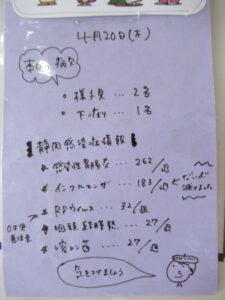 4月20日(木)
本日の病欠
○ 様子見 … 2名
○ 下痢 … 1名
静岡感染症情報
* 感染性胃腸炎 … 262/週
* インフルエンザ … 183/週
だいぶ減りました。
* RSウイルス … 32/週
* 咽頭結膜熱 … 27/週
* 溶レン菌 … 27/週
気をつけましょう